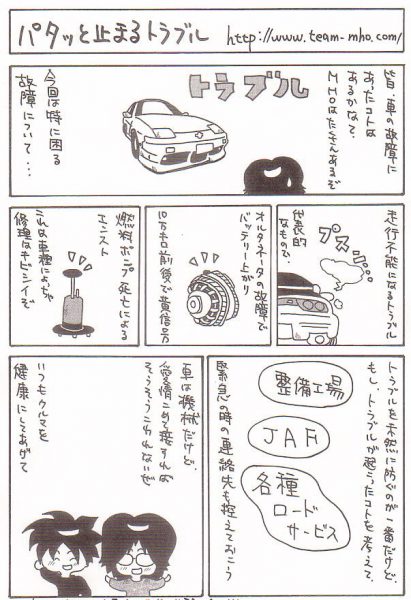 パタッと止まるトラブル
http://www.team-mho.com/
皆、車の故障に
あったコトは
あるかな?
MHOはたくさんあるぞ
トラブル
今回は特に困る
故障について…
走行不能になるトラブル
代表的
なもので、
プスン…
オルタネータの故障で
バッテリー上がり
10万キロ前後で黄信号
燃料ポンプ死亡による
エンスト
これは車種によっちゃ
修理はキビシイぞ
トラブルを未然に防ぐのが一番だけど、
もし、トラブルが起こったコトを考えて、
整備工場
JAF
各種
ロード
サービス
緊急の時の連絡先も控えておこう
車は機械だけど、
愛情こめて接すれば
そうそうこわれないぜ
いつもクルマを
健康にしてあげて